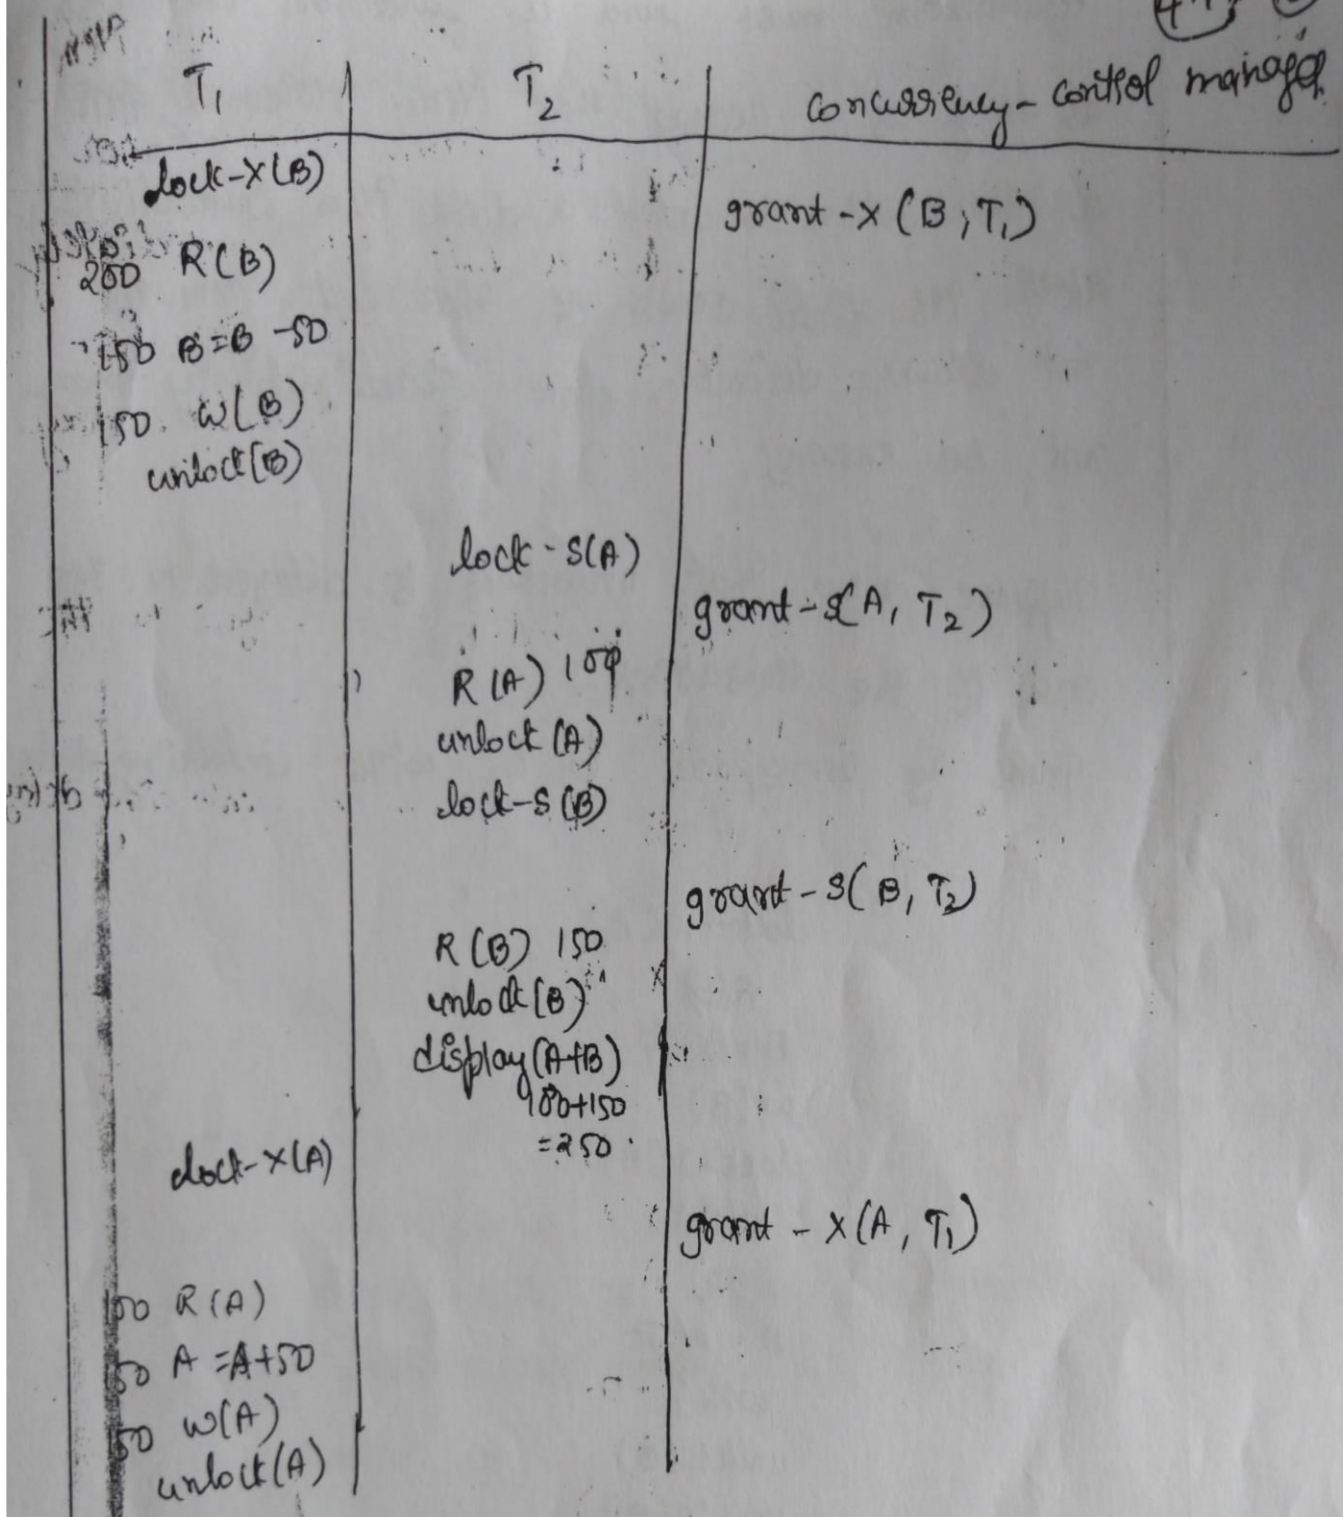 T1 T2 concurrency-control manager
lock-X(B)
grant-X(B, T1)
200 R(B)
150 B=B-50
150 W(B)
unlock(B)
lock-S(A)
grant-S(A, T2)
R(A) 100
unlock(A)
lock-S(B)
grant-S(B, T2)
R(B) 150
unlock(B)
display(A+B)
100+150
=250
lock-X(A)
grant-X(A, T1)
R(A)
A=A+50
W(A)
unlock(A)